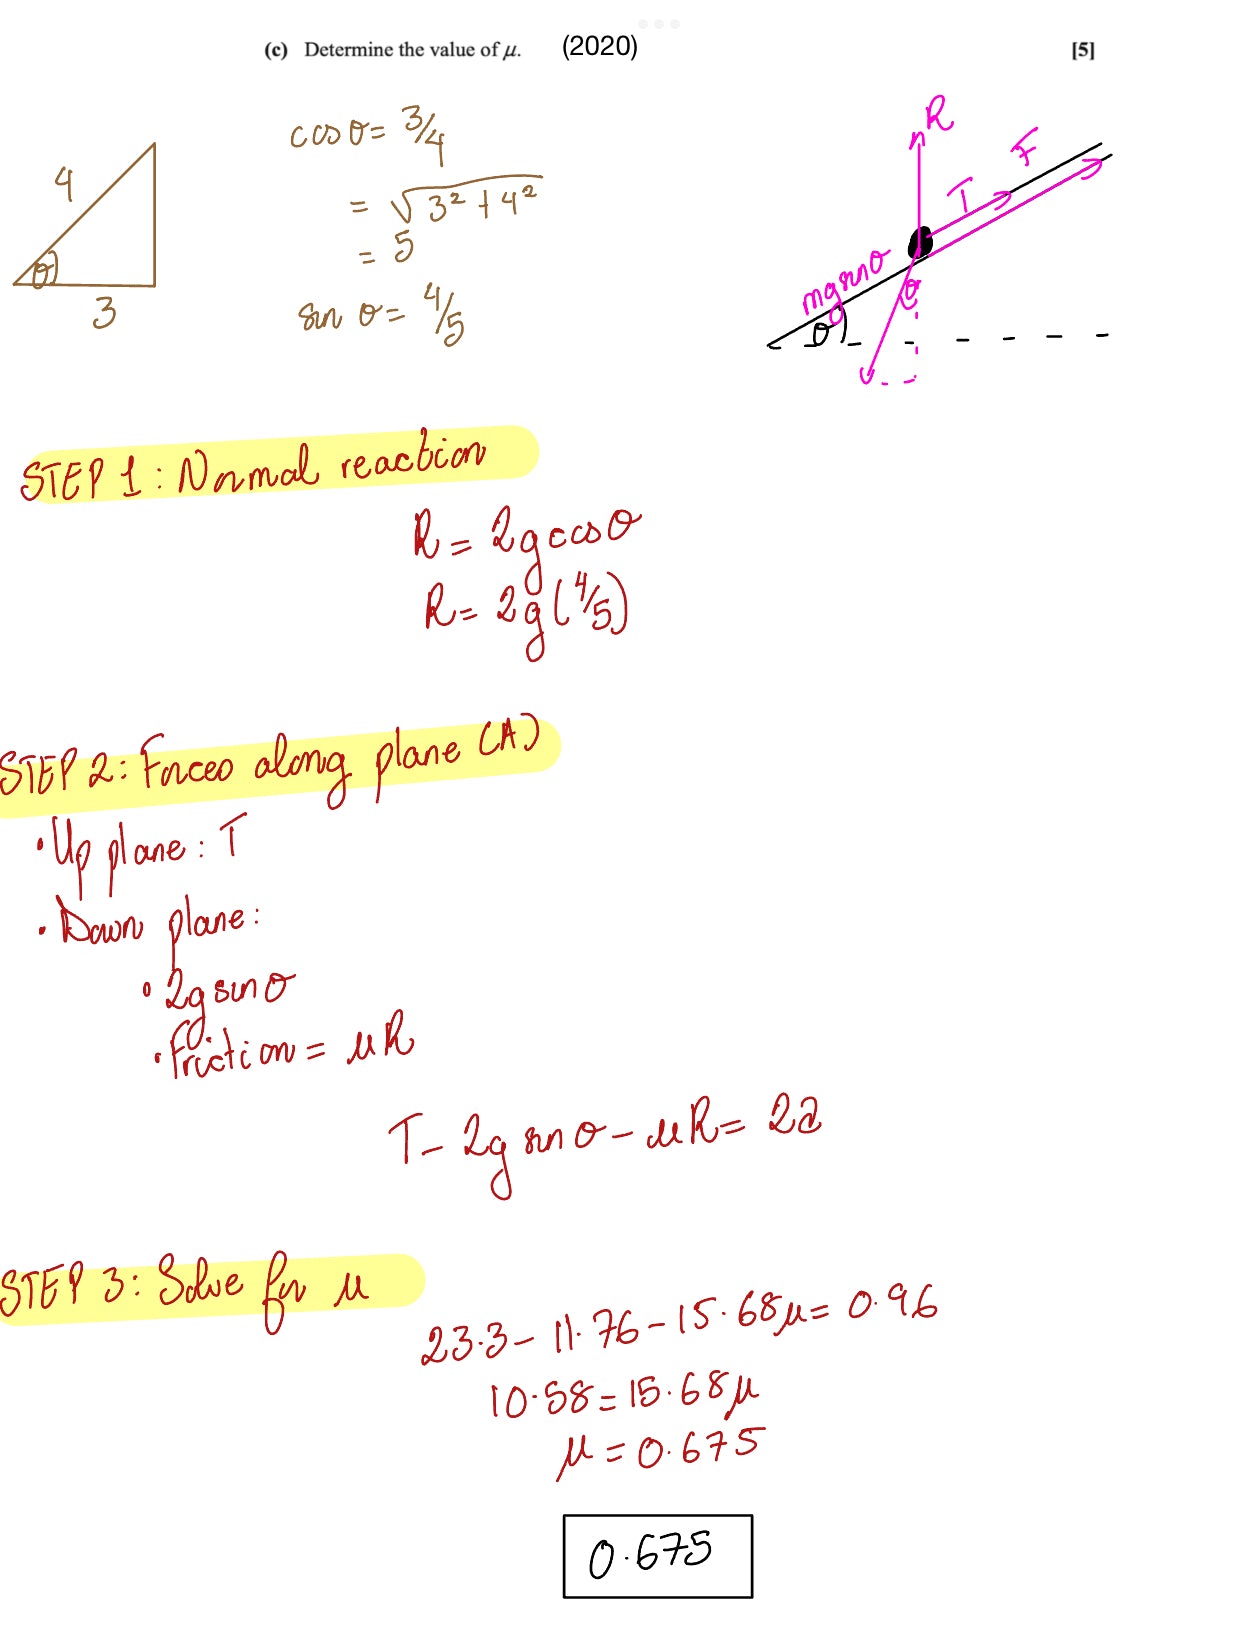 (c) Determine the value of μ. (2020) [5]
4
θ
3
cos θ = 3/4
= √3² + 4²
= 5
sin θ = 4/5
R
T F
mg sin θ
θ
θ
STEP 1: Normal reaction
R = 2g cos θ
R = 2g (4/5)
STEP 2: Forces along plane (A)
• Up plane: T
• Down plane:
• 2g sin θ
• Friction = μR
T - 2g sin θ - μR = 2a
STEP 3: Solve for μ
23.3 - 11.76 - 15.68μ = 0.96
10.58 = 15.68μ
μ = 0.675
0.675